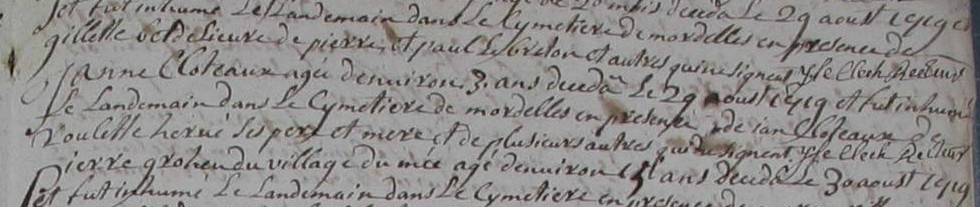 de 20 mois deceda Le 29 aoust 1719 et
et fut inhumé Le Landemain dans Le Cymetiere de mordelles en presence de
gillette betdelievre de pierre, et paul Lebreton et autres qui ne signent Recteur
Janne Cloteaux agée denviron 3 ans deceda Le 29 aoust 1719 et fut inhumée
Le Landemain dans Le Cymetiere de mordelles en presence de ian Cloteaux et de
roulette hervé ses pere et mere et de plusieurs autres qui ne signent Recteur
pierre grohen du village du mée agé denviron 15 ans deceda Le 30 aoust 1719
et fut inhumé Le Landemain dans Le Cymetiere en presence de